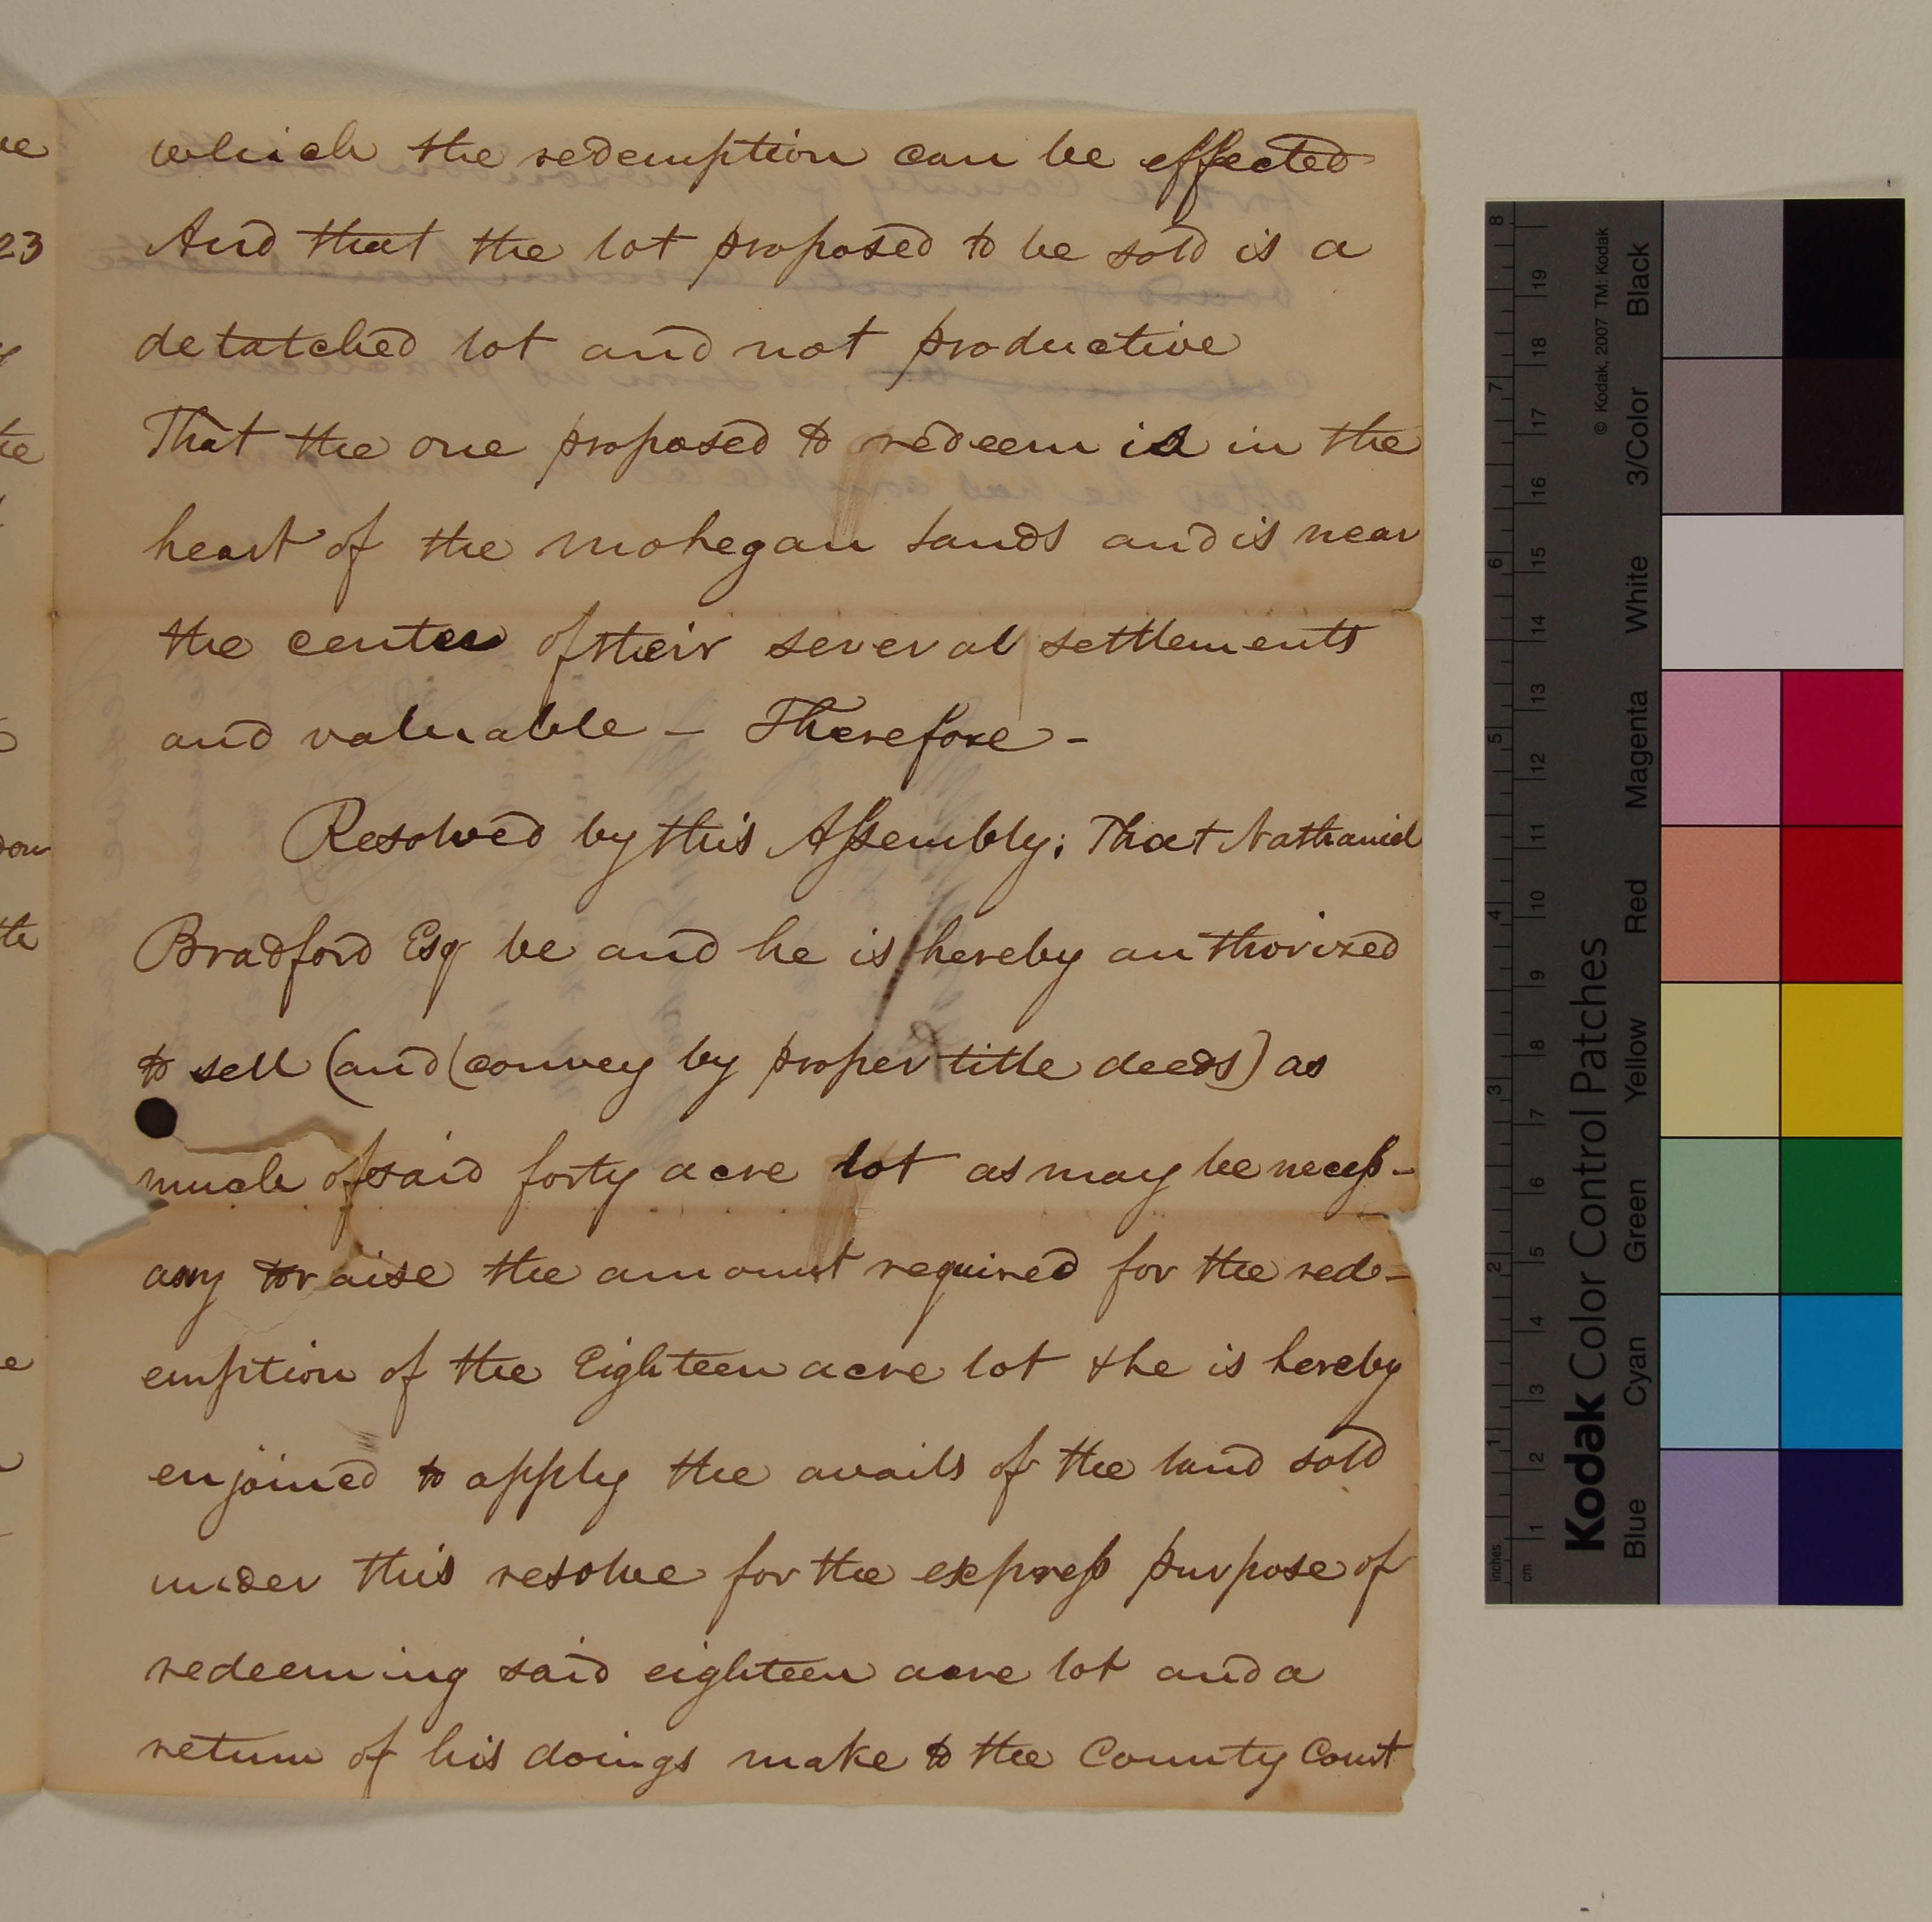 which the redemption can be effected
And that the lot proposed to be sold is a
detatched lot and not productive
That the one proposed to redeem is in the
heart of the Mohegan Lands and is near
the center of their several settlements
and valuable – Therefore –
Resolved by this Assembly; That Nathaniel
Bradford Esq be and he is hereby authorized
to sell (and (convey by proper title deeds) as
much of said forty acre lot as may be necess-
ary to raise the amount required for the red-
emption of the Eighteen acre lot & he is hereby
enjoined to apply the avails of the land sold
under this resolve for the express purpose of
redeeming said eighteen acre lot and a
return of his doings make to the County Court
23
Kodak Color Control Patches
© Kodak, 2007 TM: Kodak
Blue Cyan Green Yellow Red Magenta White 3/Color Black
inches 1 2 3 4 5 6 7 8
cm 1 2 3 4 5 6 7 8 9 10 11 12 13 14 15 16 17 18 19